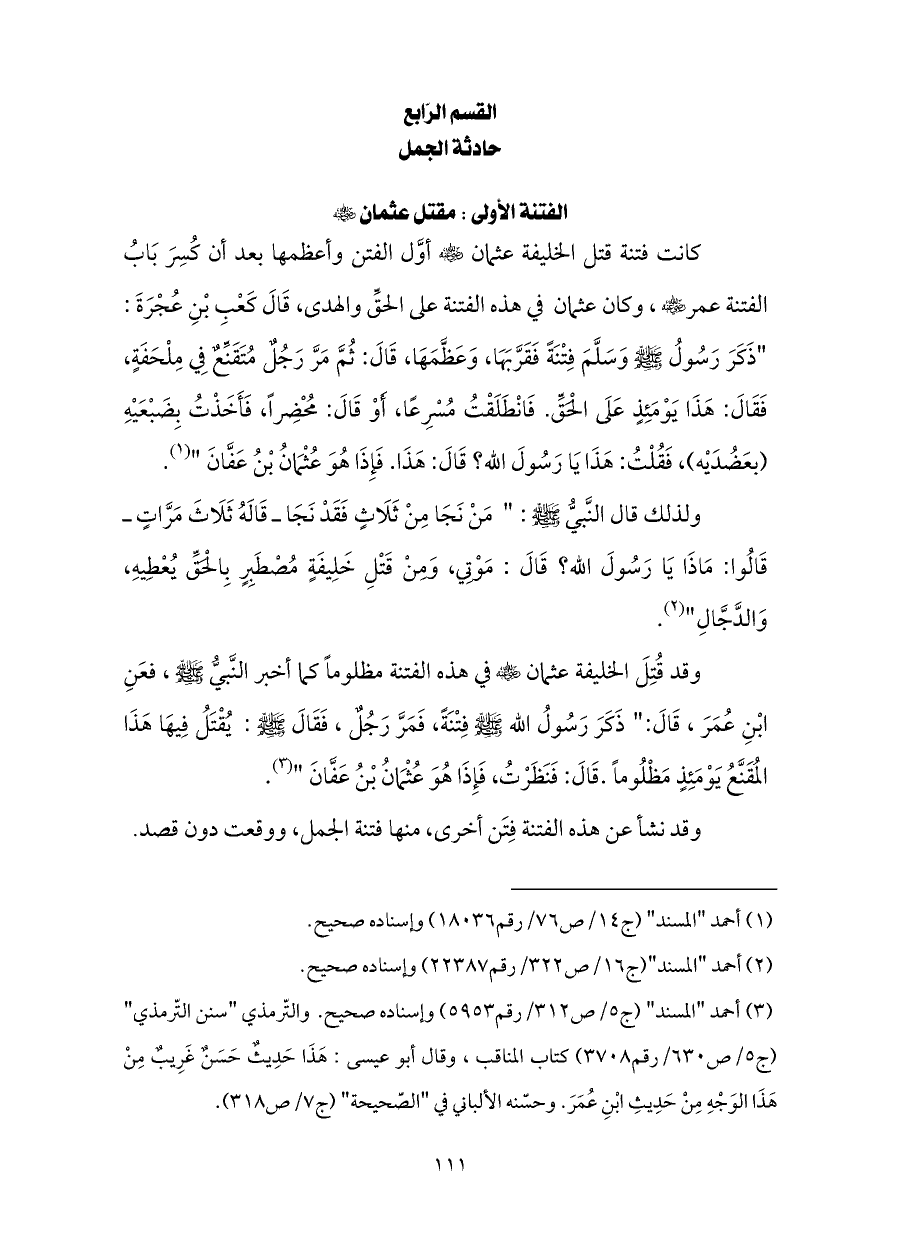 القسم الرّابع
حادثة الجمل
الفتنة الأولى : مقتل عثمان ﵁
كانت فتنة قتل الخليفة عثمان ﵁ أوَّل الفتن وأعظمها بعد أن كُسِرَ بَابُ
الفتنة عمر﵁ ، وكان عثمان في هذه الفتنة على الحقِّ والهدى، قَالَ كَعْبِ بْنِ عُجْرَةَ :
"ذَكَرَ رَسُولُ ﷺ وَسَلَّمَ فِتْنَةً فَقَرَّبَهَا، وَعَظَّمَهَا، قَالَ: ثُمَّ مَرَّ رَجُلٌ مُتَقَنِّعٌ فِي مِلْحَفَةٍ،
فَقَالَ: هَذَا يَوْمَئِذٍ عَلَى الْحَقِّ. فَانْطَلَقْتُ مُسْرِعًا، أَوْ قَالَ: مُحْضِراً، فَأَخَذْتُ بِضَبْعَيْهِ
(بعَضُدَيْه)، فَقُلْتُ: هَذَا يَا رَسُولَ الله؟ قَالَ: هَذَا. فَإِذَا هُوَ عُثْمَانُ بْنُ عَفَّانَ "(١).
ولذلك قال النَّبيُّ ﷺ : " مَنْ نَجَا مِنْ ثَلَاثٍ فَقَدْ نَجَا ـ قَالَهُ ثَلَاثَ مَرَّاتٍ ـ
قَالُوا: مَاذَا يَا رَسُولَ الله؟ قَالَ : مَوْتِي، وَمِنْ قَتْلِ خَلِيفَةٍ مُصْطَبِرٍ بِالْحَقِّ يُعْطِيهِ،
وَالدَّجَّالِ"(٢).
وقد قُتِلَ الخليفة عثمان ﵁ في هذه الفتنة مظلوماً كما أخبر النَّبيُّ ﷺ ، فعَنِ
ابْنِ عُمَرَ ، قَالَ:" ذَكَرَ رَسُولُ الله ﷺ فِتْنَةً، فَمَرَّ رَجُلٌ ، فَقَالَ ﷺ : يُقْتَلُ فِيهَا هَذَا
المُقَنَّعُ يَوْمَئِذٍ مَظْلُوماً .قَالَ: فَنَظَرْتُ، فَإِذَا هُوَ عُثْمَانُ بْنُ عَفَّانَ "(٣).
وقد نشأ عن هذه الفتنة فِتَن أخرى، منها فتنة الجمل، ووقعت دون قصد.
(١) أحمد "المسند" (ج١٤/ ص٧٦/ رقم١٨٠٣٦) وإسناده صحيح.
(٢) أحمد "المسند"(ج١٦/ ص٣٢٢/ رقم٢٢٣٨٧) وإسناده صحيح.
(٣) أحمد "المسند" (ج٥/ ص٣١٢/ رقم٥٩٥٣) وإسناده صحيح. والتّرمذي "سنن التّرمذي"
(ج٥/ ص٦٣٠/ رقم٣٧٠٨) كتاب المناقب ، وقال أبو عيسى : هَذَا حَدِيثٌ حَسَنٌ غَرِيبٌ مِنْ
هَذَا الوَجْهِ مِنْ حَدِيثِ ابْنِ عُمَرَ. وحسّنه الألباني في "الصّحيحة" (ج٧/ ص٣١٨).
١١١